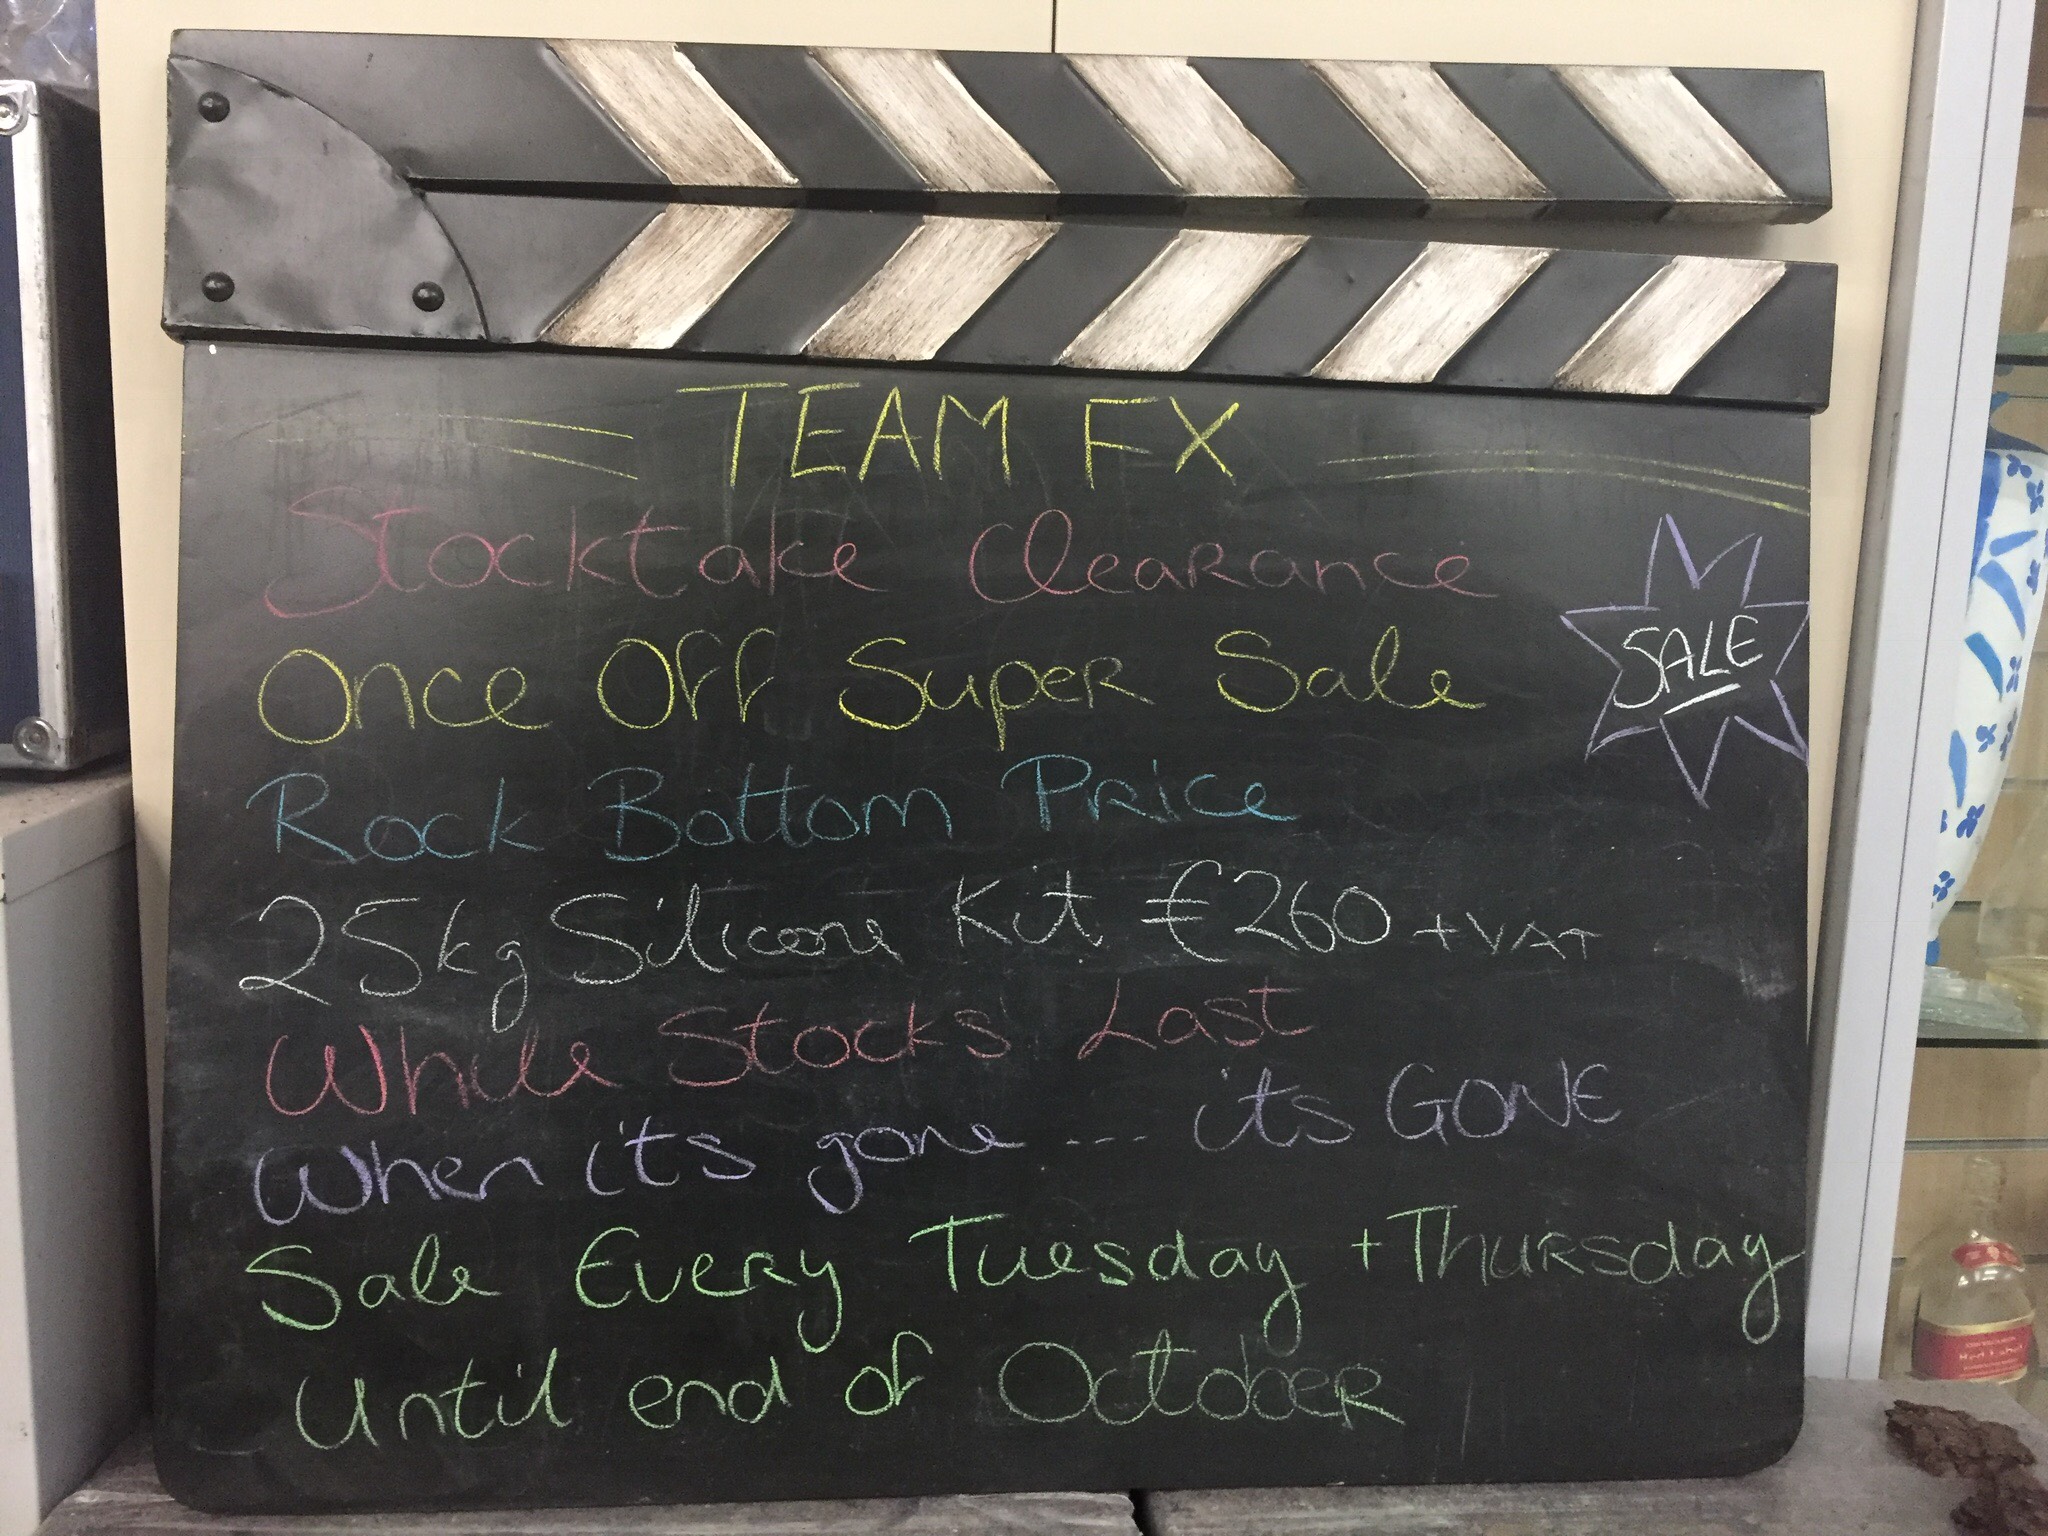 TEAM FX
Stocktake Clearance
Once Off Super Sale
SALE
Rock Bottom Price
25kg Silicone Kit €260 +VAT
While Stocks Last
When it's gone --- its GONE
Sale Every Tuesday + Thursday
Until end of October
Red Label